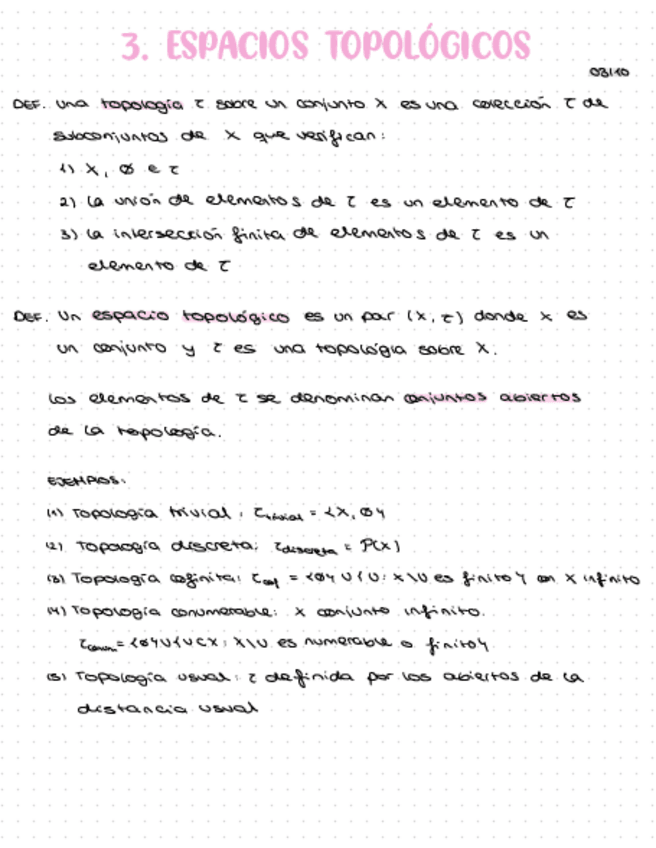 3. ESPACIOS TOPOLÓGICOS
03/10
DEF. Una topología τ sobre un conjunto X es una colección τ de
subconjuntos de X que verifican:
1) X, ∅ ∈ τ
2) La unión de elementos de τ es un elemento de τ
3) La intersección finita de elementos de τ es un
elemento de τ
DEF. Un espacio topológico es un par (X, τ) donde X es
un conjunto y τ es una topología sobre X.
Los elementos de τ se denominan conjuntos abiertos
de la topología.
EJEMPLOS:
(1) Topología trivial: τ_trivial = {X, ∅}
(2) Topología discreta: τ_discreta = P(X)
(3) Topología cofinita: τ_cof = {∅} ∪ {U: X\U es finito} con X infinito
(4) Topología conumerable: X conjunto infinito.
τ_conum = {∅} ∪ {U ⊂ X: X\U es numerable o finito}
(5) Topología usual: τ definida por los abiertos de la
distancia usual